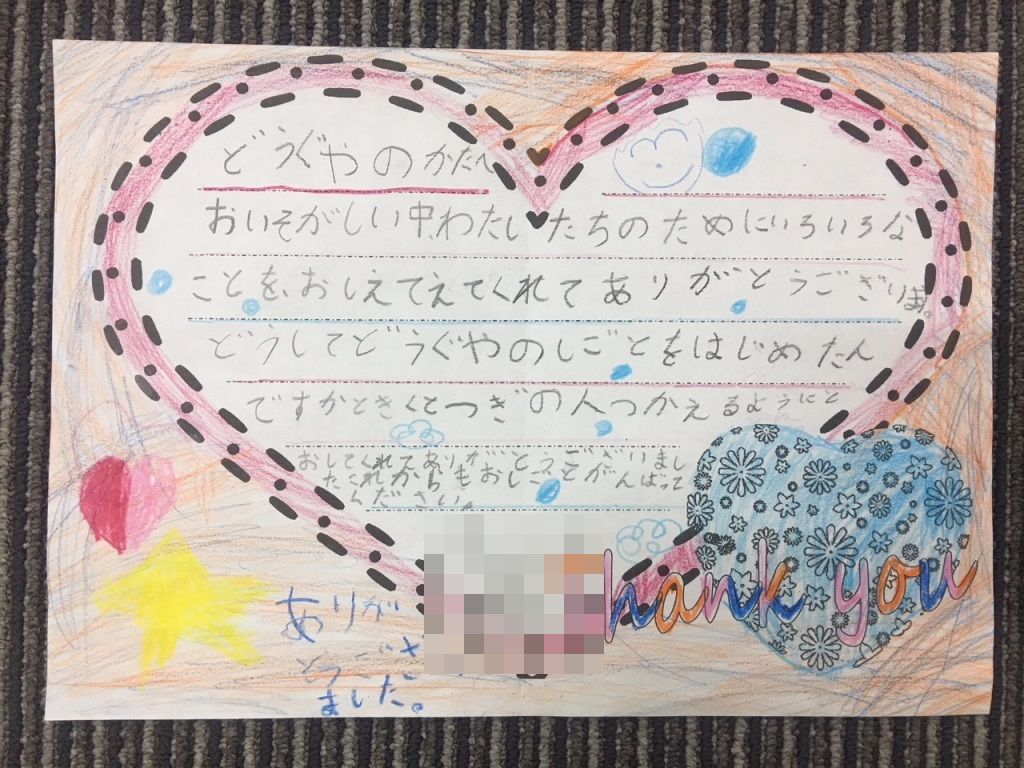 どうぐやのかたへ
おいそがしい中、わたしたちのためにいろいろな
ことを、おしえてえてくれてありがとうございます。
どうしてどうぐやのしごとをはじめたん
ですかときくとつぎの人つかえるようにと
おしてくれてありがとうございまし
たこれからもおしごとがんばって
ください。
ありが
とうござ
ました。
hank you